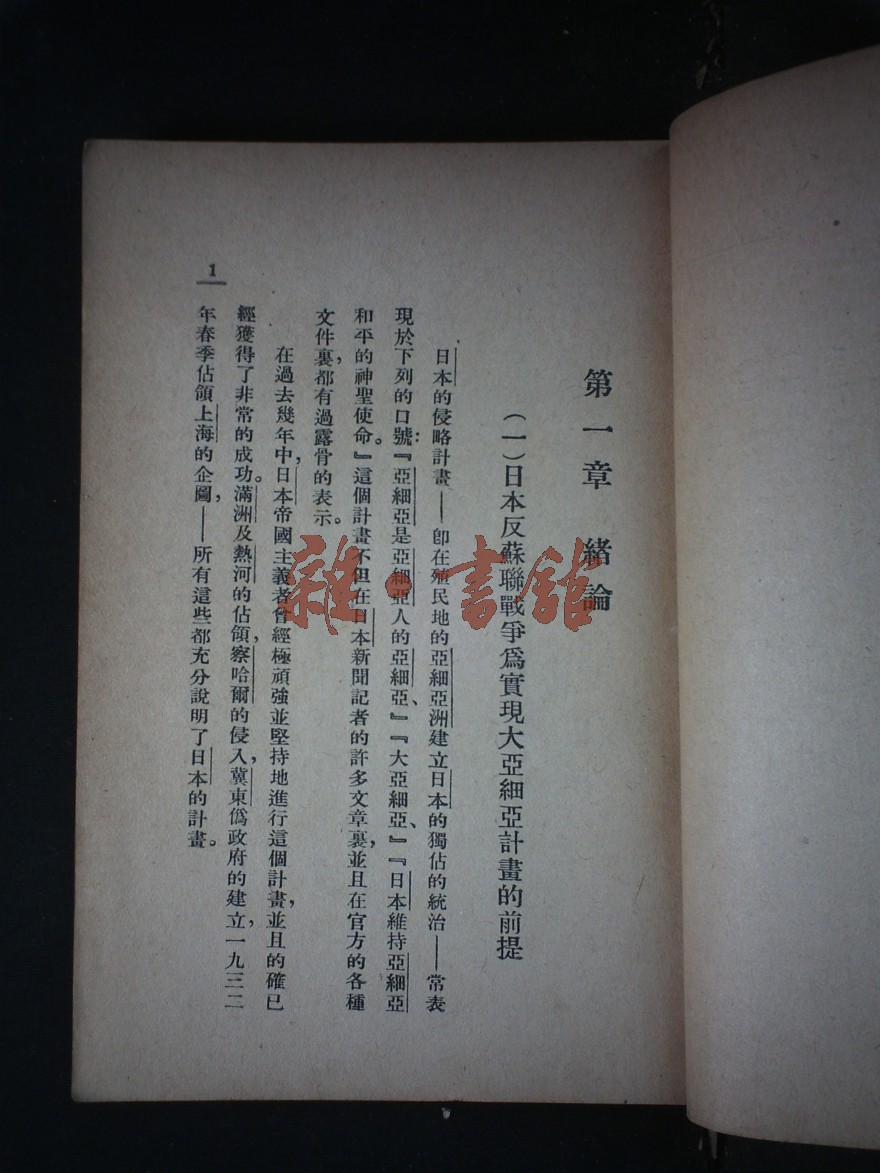 第一章　緒論
（一）日本反蘇聯戰爭爲實現大亞細亞計畫的前提
日本的侵略計畫——卽在殖民地的亞細亞洲建立日本的獨佔的統治——常表
現於下列的口號：『亞細亞是亞細亞人的亞細亞、』『大亞細亞、』『日本維持亞細亞
和平的神聖使命。』這個計畫不但在日本新聞記者的許多文章裏，並且在官方的各種
文件裏，都有過露骨的表示。
在過去幾年中，日本帝國主義者曾經極頑強並堅持地進行這個計畫，並且的確已
經獲得了非常的成功。滿洲及熱河的佔領，察哈爾的侵入，冀東僞政府的建立，一九三二
年春季佔領上海的企圖，——所有這些都充分說明了日本的計畫。
1
雜·書館